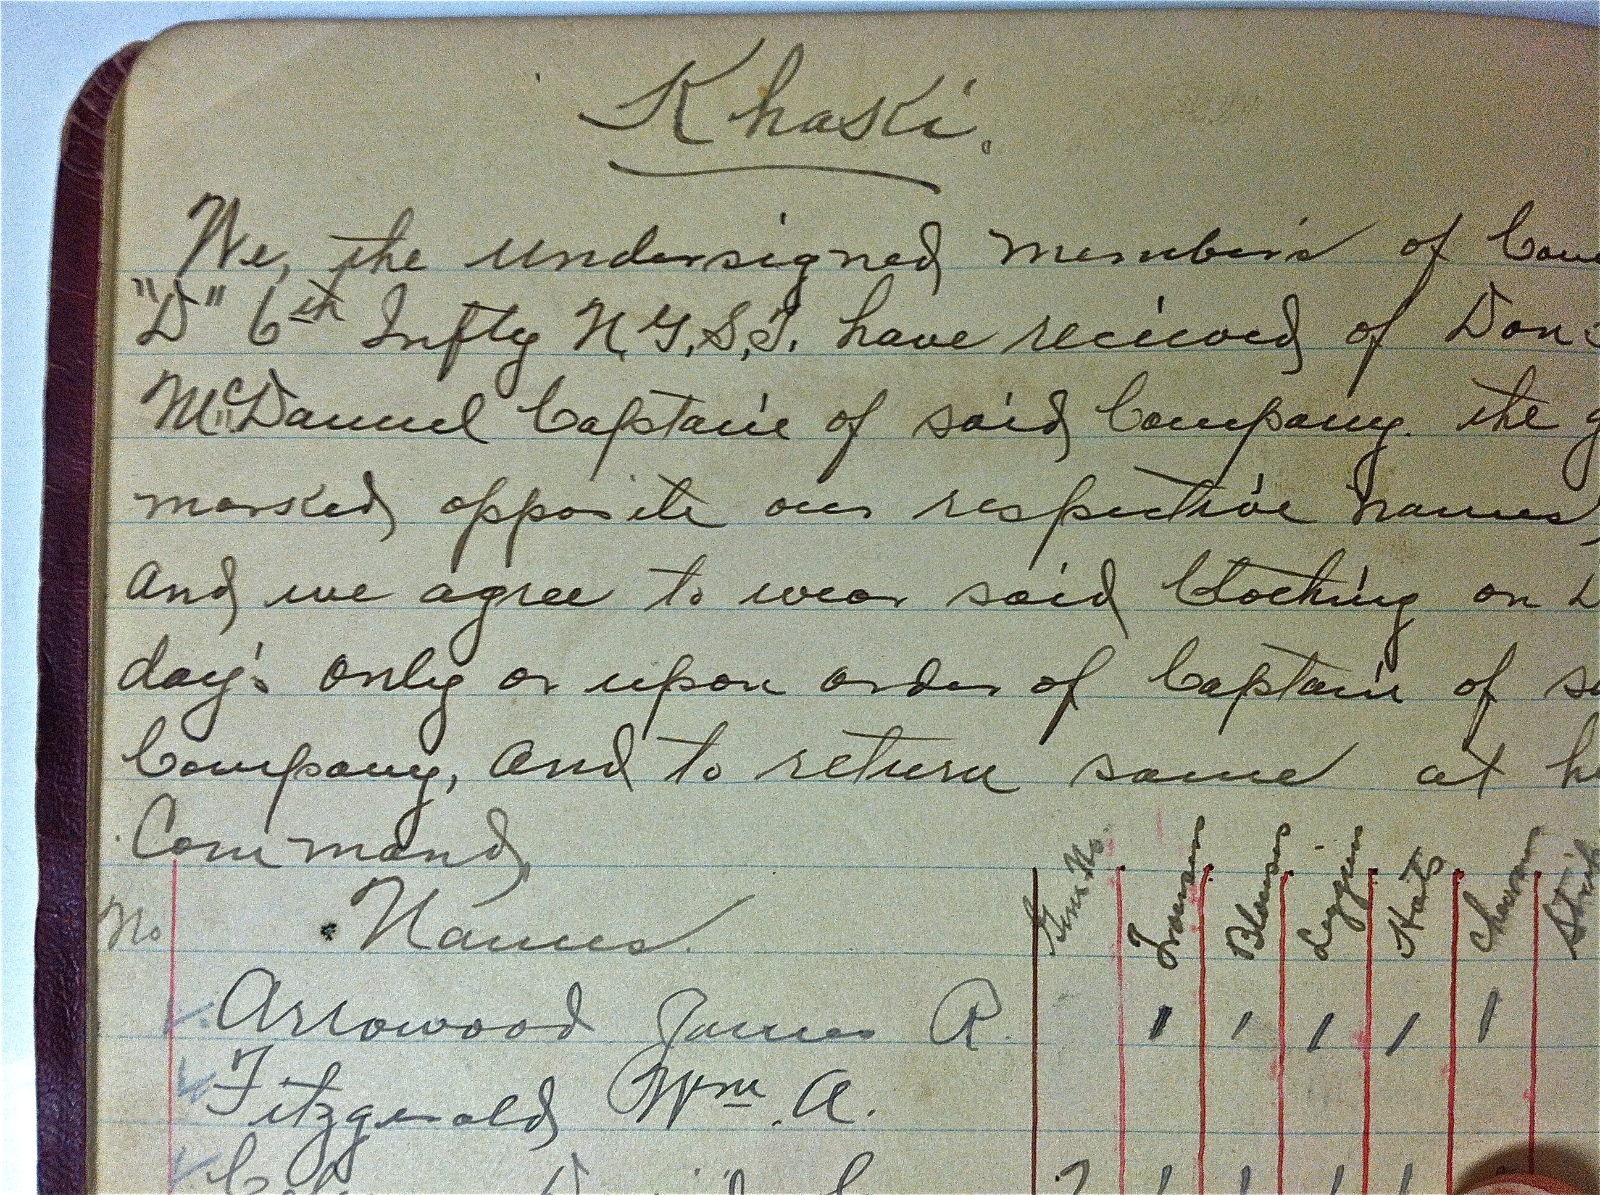 Khaski.
We, the undersigned members of
"D" 6th Infty N.G.S.T. have recieved of
McDaniel Captain of said Company. the
marked opposite our respective names,
and we agree to wear said Clothing on
day's only or upon order of Captain of
Company, and to return same at
Command,
No Names. Gun No. Trousers Blouses Leggins Hats
Arrowood James R.
Fitzgerald Wm. A.